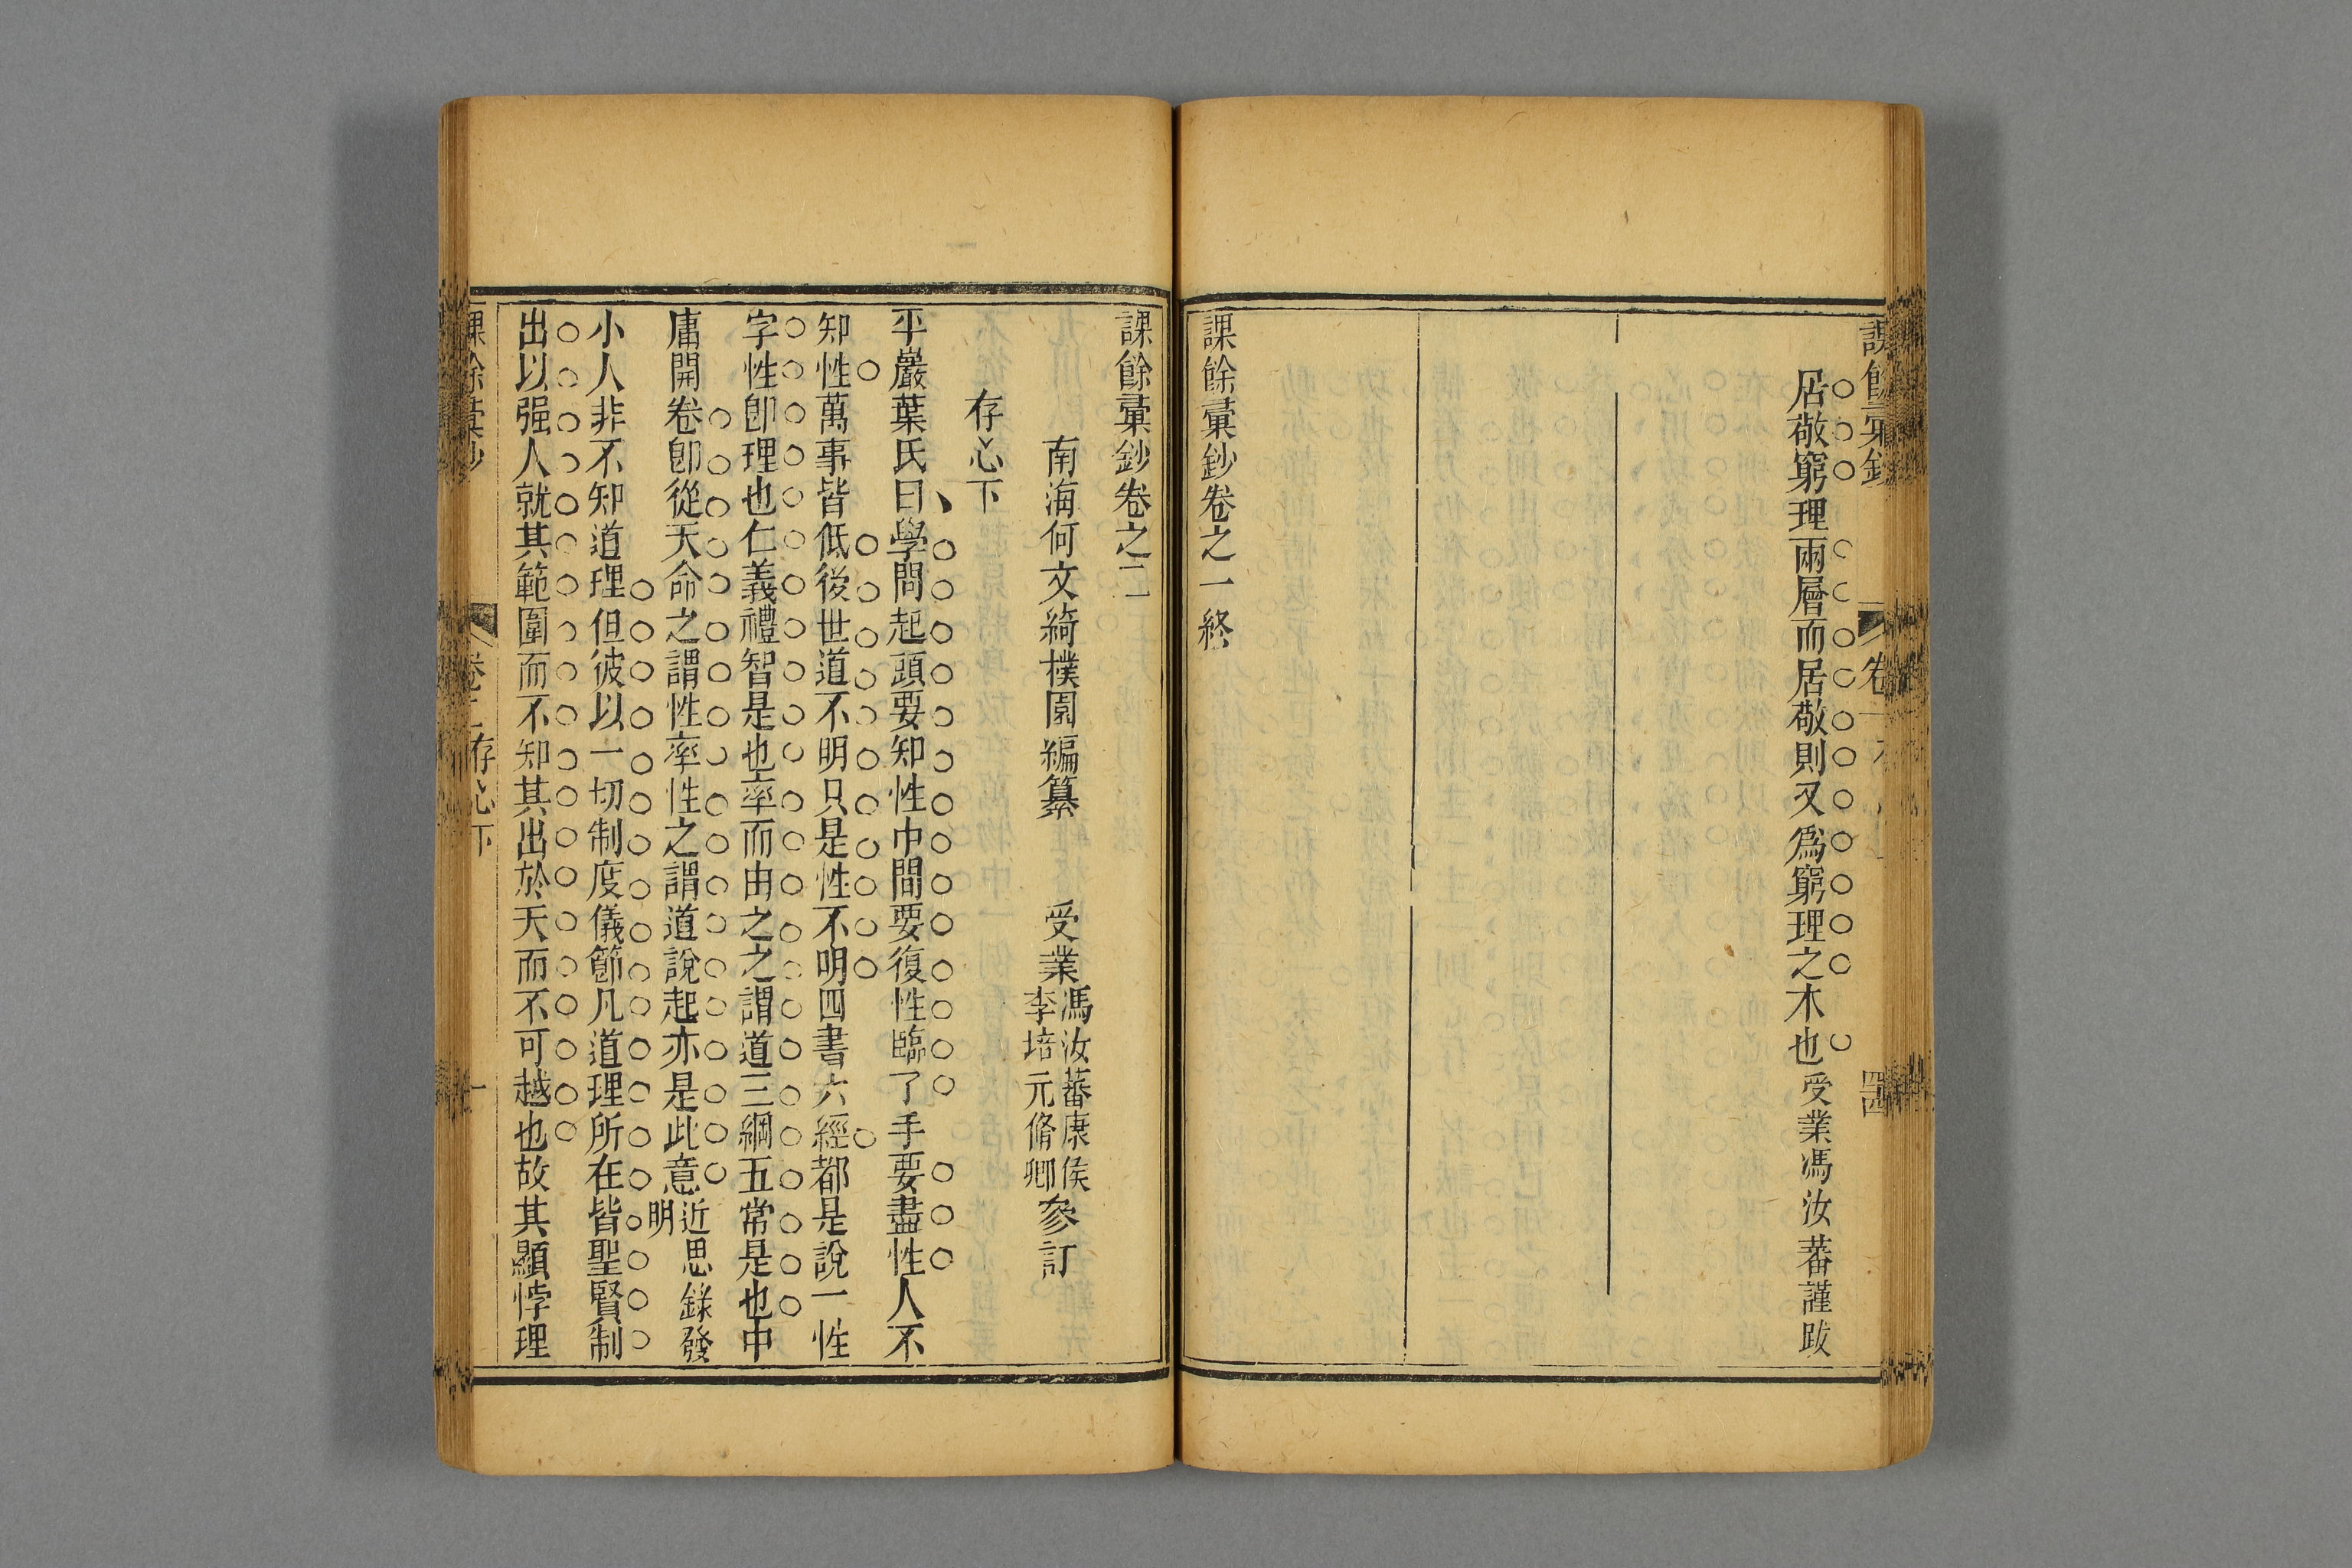 居敬窮理兩層而居敬則又爲窮理之木也受業馮汝蕃謹跋
課餘彙鈔卷之一終
課餘彙鈔卷之二
南海何文綺樸園編纂
受業馮汝蕃康侯李培元脩卿參訂
存心下
平巖葉氏曰學問起頭要知性巾間要復性臨了手要盡性人不
知性萬事皆低後世道不明只是性不明四書六經都是說一性
字性卽理也仁義禮智是也率而由之之謂道三綱五常是也中
庸開卷卽從天命之謂性率性之謂道說起亦是此意近思錄發明
小人非不知道理但彼以一切制度儀節凡道理所在皆聖賢制
出以强人就其範圍而不知其出於天而不可越也故其顯悖理
存心下